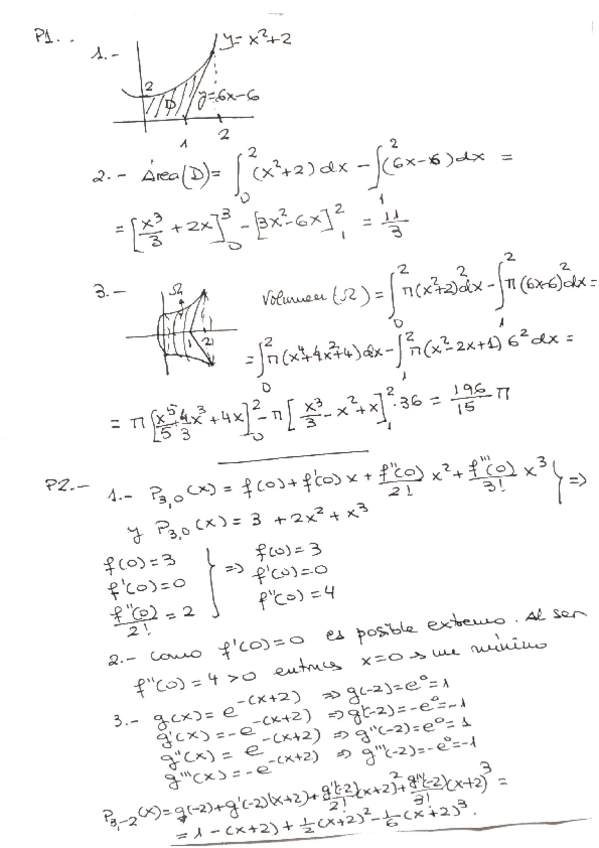 P1..
1.-
y= x²+2
2
D
y=6x-6
1 2
2.- Área(D)= ∫₀² (x²+2) dx - ∫₁² (6x-6) dx =
= [x³/3 + 2x]₀³ - [3x²-6x]₁² = 11/3
3.- Ω
1 2
Volumen (Ω) = ∫₀² π(x²+2)² dx - ∫₁² π(6x-6)² dx =
= ∫₀² π(x⁴+4x²+4) dx - ∫₁² π(x²-2x+1) 6² dx =
= π [x⁵/5 + 4/3 x³ + 4x]₀² - π [x³/3 - x² + x]₁² · 36 = 196/15 π
P2.- 1.- P₃,₀(x) = f(0) + f'(0) x + f''(0)/2! x² + f'''(0)/3! x³ } =>
y P₃,₀(x) = 3 + 2x² + x³
f(0)=3 } => f(0)=3
f'(0)=0 f'(0)=0
f''(0)/2! = 2 f''(0)=4
2.- Como f'(0)=0 es posible extremo. Al ser
f''(0)=4>0 entonces x=0 es un mínimo
3.- g(x)= e^-(x+2) => g(-2)=e⁰=1
g'(x)=-e^-(x+2) => g'(-2)=-e⁰=-1
g''(x)= e^-(x+2) => g''(-2)=e⁰=1
g'''(x)=-e^-(x+2) => g'''(-2)=-e⁰=-1
P₃,₋₂(x)=g(-2)+g'(-2)(x+2)+g''(-2)/2!(x+2)²+g'''(-2)/3!(x+2)³ =
= 1-(x+2)+1/2(x+2)²-1/6(x+2)³.